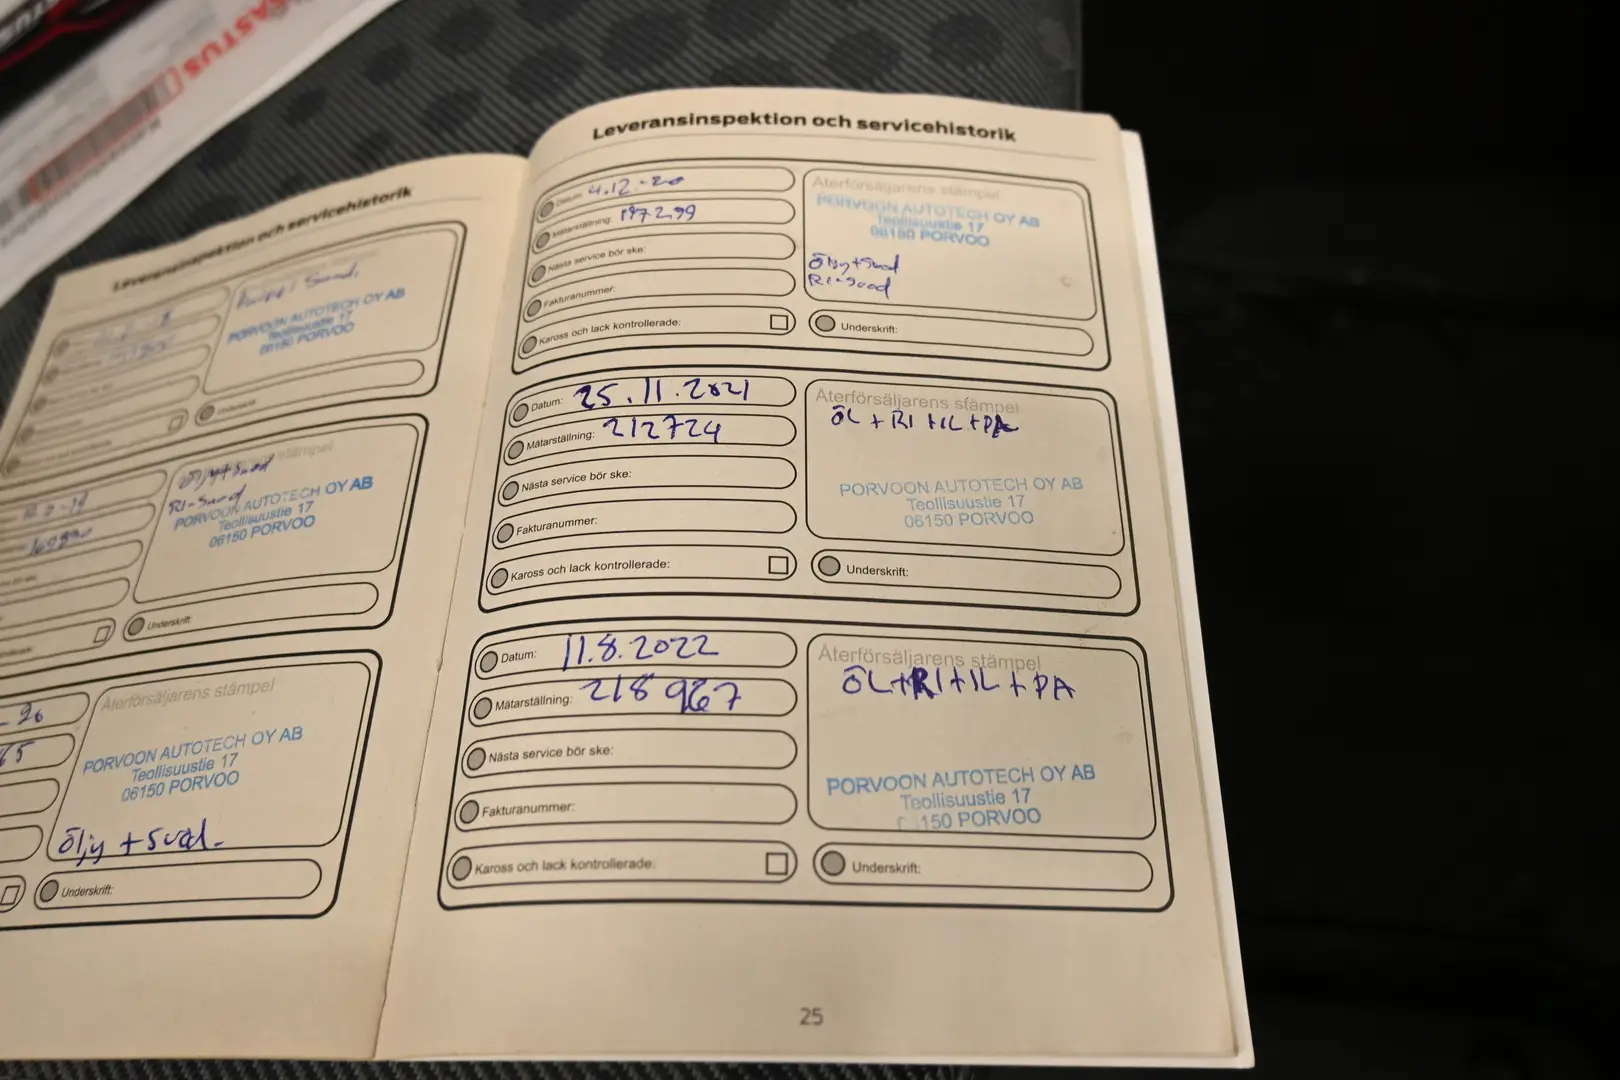 SASTUS
Leveransinspektion och servicehistorik
PORVOON AUTOTECH OY AB
Teollisuustie 17
06150 PORVOO
Underskrift:
Återförsäljarens stämpel
Öljy+suod
RI-Suod
PORVOON AUTOTECH OY AB
Teollisuustie 17
06150 PORVOO
Underskrift:
Återförsäljarens stämpel
PORVOON AUTOTECH OY AB
Teollisuustie 17
06150 PORVOO
Öljy + suod.
Underskrift:
Leveransinspektion och servicehistorik
Datum: 4.12-20
Mätarställning: 197299
Nästa service bör ske:
Fakturanummer:
Kaross och lack kontrollerade:
Återförsäljarens stämpel
PORVOON AUTOTECH OY AB
Teollisuustie 17
06150 PORVOO
Öljy+suod
RI-suod
Underskrift:
Datum: 25.11.2021
Mätarställning: 212724
Nästa service bör ske:
Fakturanummer:
Kaross och lack kontrollerade:
Återförsäljarens stämpel
ÖL + RI + IL + PA
PORVOON AUTOTECH OY AB
Teollisuustie 17
06150 PORVOO
Underskrift:
Datum: 11.8.2022
Mätarställning: 218 967
Nästa service bör ske:
Fakturanummer:
Kaross och lack kontrollerade:
Återförsäljarens stämpel
ÖL+RI+IL+PA
PORVOON AUTOTECH OY AB
Teollisuustie 17
150 PORVOO
Underskrift:
25